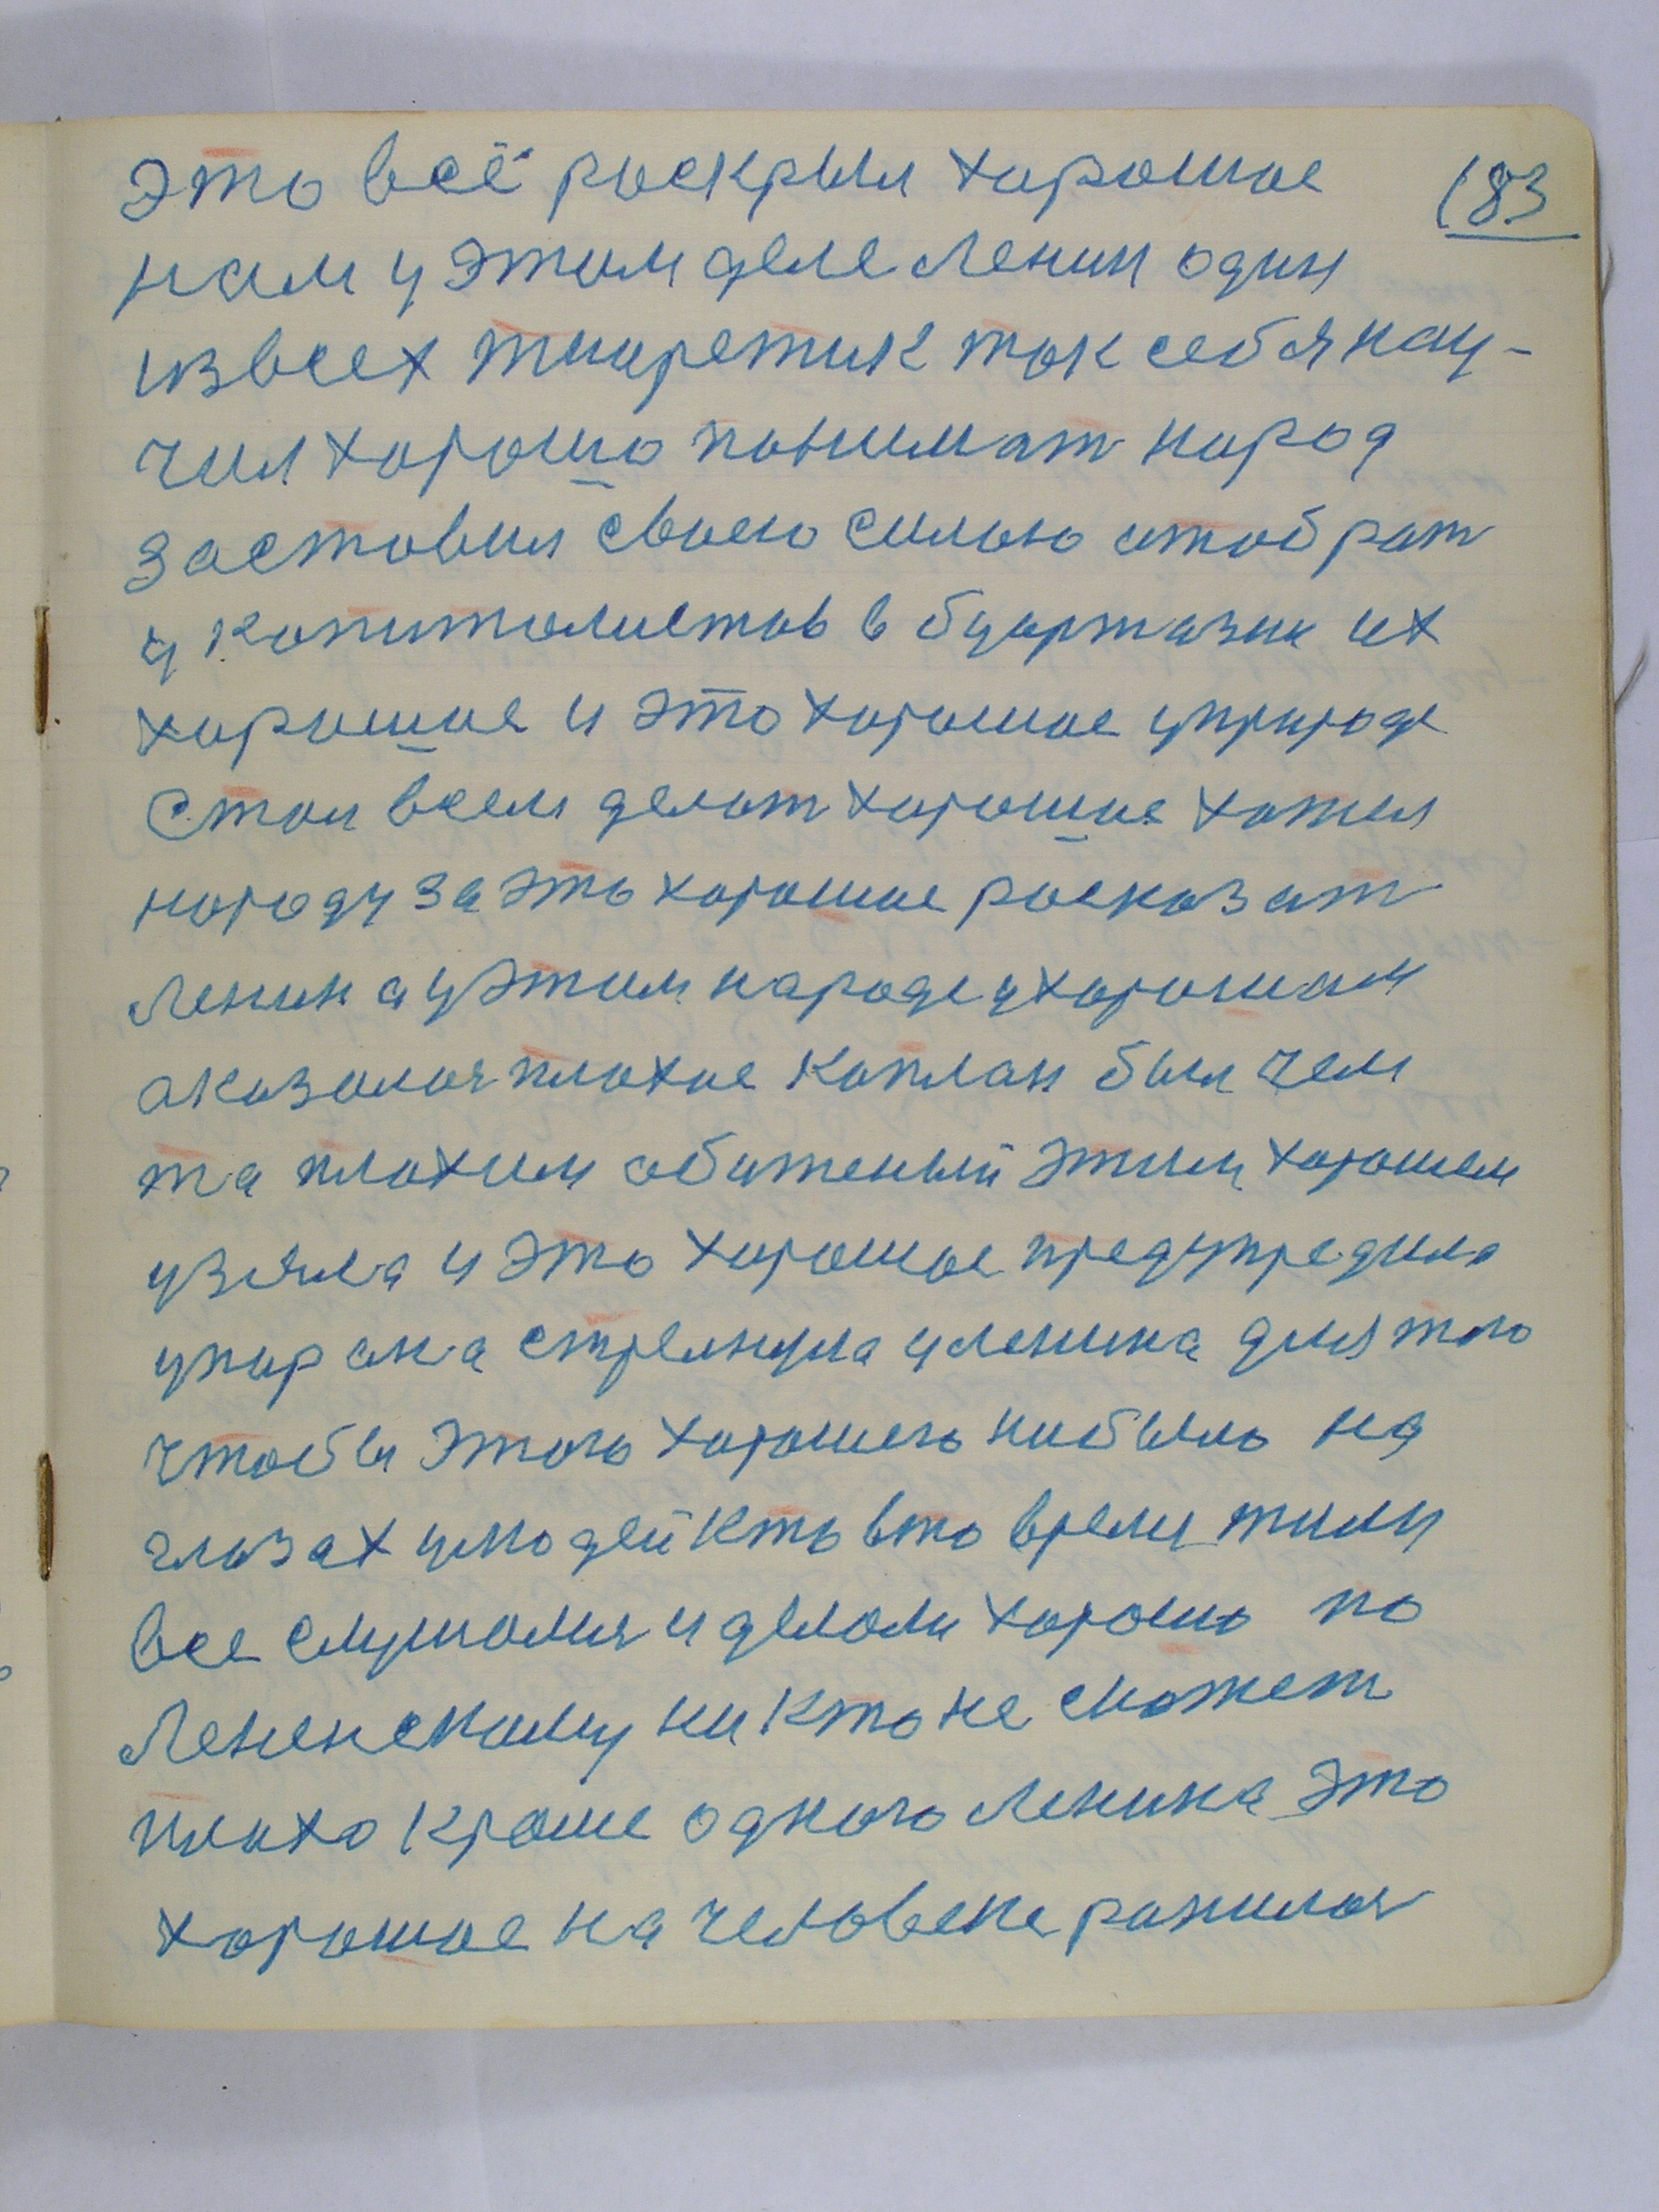 это всё роскрыл хорошое
183
нам у этим деле Ленин один
из всех тиоретик так себя нау-
чил хорошо понимат народ
заставил своею силою отобрат
у копиталистов в буаржазии их
хорошое и это хорошое у природе
стал всем делат хорошое хотил
народу за это хорошое росказат
Ленин а у этим народе у хорошам
аказалая плохое Каплан был чем
та плохим обиженый этим хорошем
узяла и это хорошое предупредила
упир ана стрелнула у ленина для того
чтобы этого хорошего нибыло на
глазах у людей кто вто время жили
все слушалия и делали хорошо по
Лененскому ни кто не сможет
плохо кроме одного Ленина это
хорошое на человеке ранилоя